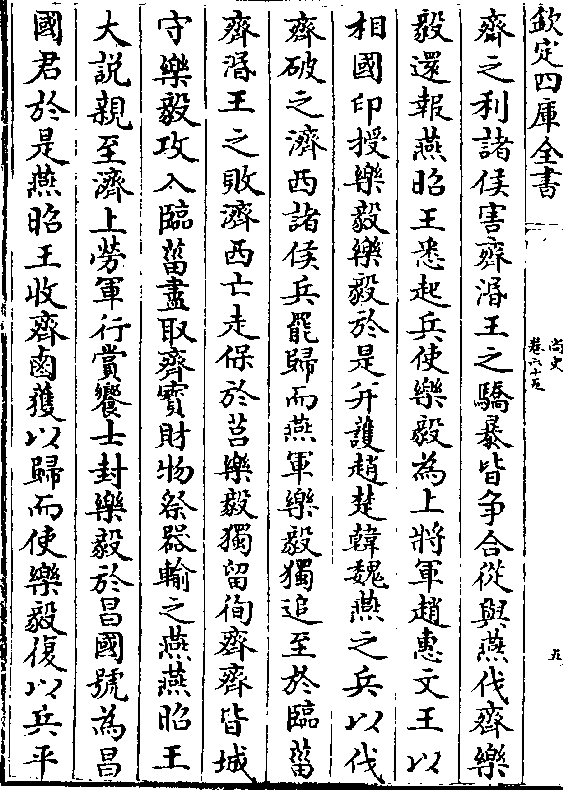 欽定四庫全書
尚史
卷六十五
五
齊之利諸侯害齊湣王之驕暴皆争合從與燕伐齊樂
毅還報燕昭王悉起兵使樂毅為上將軍趙惠文王以
相國印授樂毅樂毅於是并護趙楚韓魏燕之兵以伐
齊破之濟西諸侯兵罷歸而燕軍樂毅獨追至於臨菑
齊湣王之敗濟西亡走保於莒樂毅獨留徇齊齊皆城
守樂毅攻入臨菑盡取齊寳財物祭器輸之燕燕昭王
大説親至濟上勞軍行賞饗士封樂毅於昌國號為昌
國君於是燕昭王收齊鹵獲以歸而使樂毅復以兵平